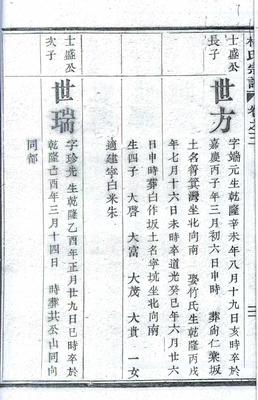 林氏宗譜
卷之二
士盛公
長子
世方
字端元生乾隆辛未年八月十九日亥時卒於
嘉慶丙子年三月初六日申時 葬荷仁藥坂
土名箐箕灣坐北向南 娶竹氏生乾隆丙戌
年七月十六日未時卒道光癸巳年六月廿六
日申時葬白作坂土名宁坑坐北向南
生四子 大啓 大富 大茂 大貴 一女
適建宇白米朱
士盛公
次子
世瑞
字珍光生乾隆乙酉年正月廿九日巳時卒於
乾隆己酉年三月十四日 時葬其公山同向
同都